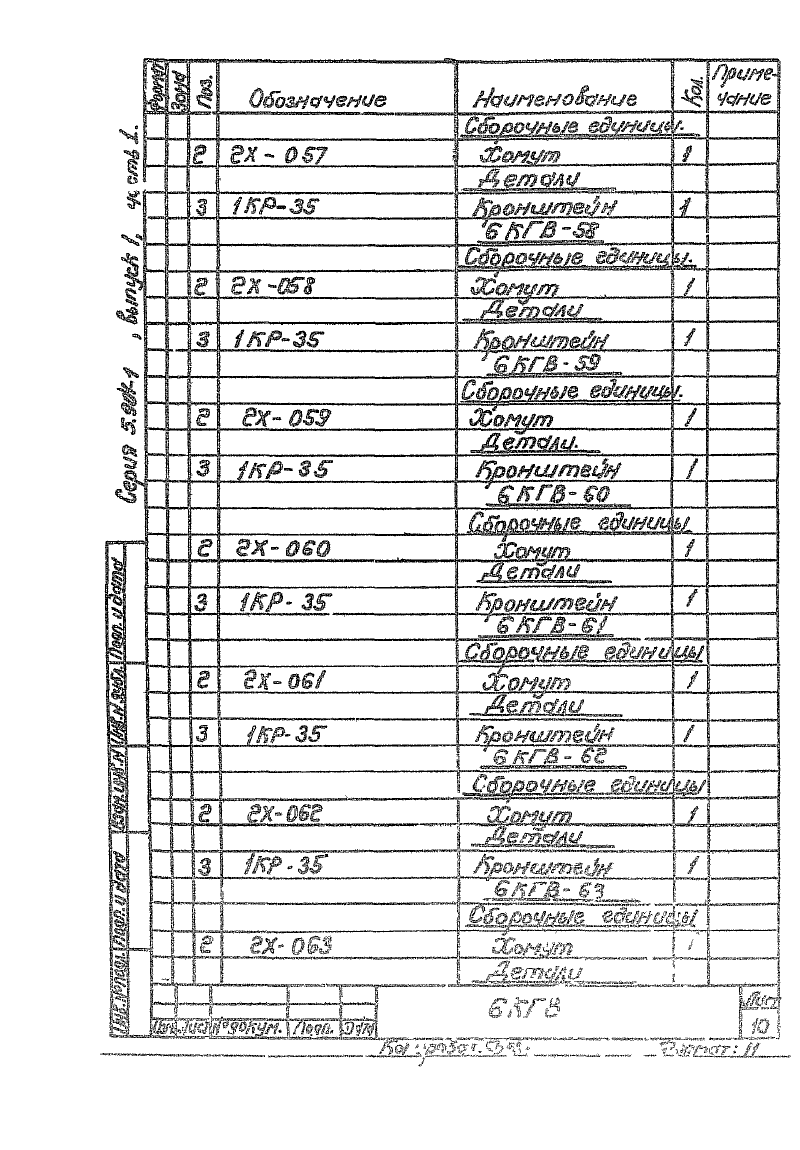 Формат Зона Поз. Обозначение Наименование Кол. Приме-
чание
Сборочные единицы.
2 2Х-057 Хомут 1
Детали
3 1КР-35 Кронштейн 1
6КГВ-58
Сборочные единицы.
2 2Х-058 Хомут 1
Детали
3 1КР-35 Кронштейн 1
6КГВ-59
Сборочные единицы.
2 2Х-059 Хомут 1
Детали.
3 1КР-35 Кронштейн 1
6КГВ-60
Сборочные единицы
2 2Х-060 Хомут 1
Детали
3 1КР-35 Кронштейн 1
6КГВ-61
Сборочные единицы
2 2Х-061 Хомут 1
Детали
3 1КР-35 Кронштейн 1
6КГВ-62
Сборочные единицы
2 2Х-062 Хомут 1
Детали
3 1КР-35 Кронштейн 1
6КГВ-63
Сборочные единицы
2 2Х-063 Хомут 1
Детали
Серия , выпуск 1, часть 1.
Подп. и дата
Инв. N дубл.
Взам. инв. N
Подп. и дата
Инв. N подл.
Изм. Лист № докум. Подп. Дата
6КГВ
Лист
10
Формат: 11